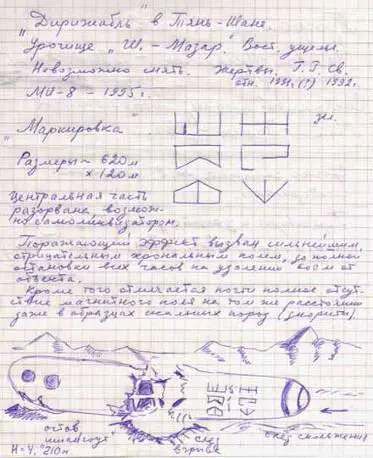 "Дирижабль" в Тянь-Шане.
Урочище "Ш.-Мазар." Вост. ущелье.
Невозможно снять. Жертвы. Г. Г. Св.
1991, (?) 1992.
МИ-8 – 1995г.
"Маркировка"
Размеры ~ 620м
× 120м
Центральная часть
разорвана, возмож-
но самоликвидатором.
Поражающий эффект вызван сильнейшим
отрицательным хрональным полем, до полной
остановки всех часов на удалении 800м от
объекта.
Кроме того отмечается почти полное отсут-
ствие магнитного поля на том же расстоянии
даже в образцах скальных пород (диориты).
остов
"шпангоут"
след
взрыва
след скольжения
Н-у. 210м